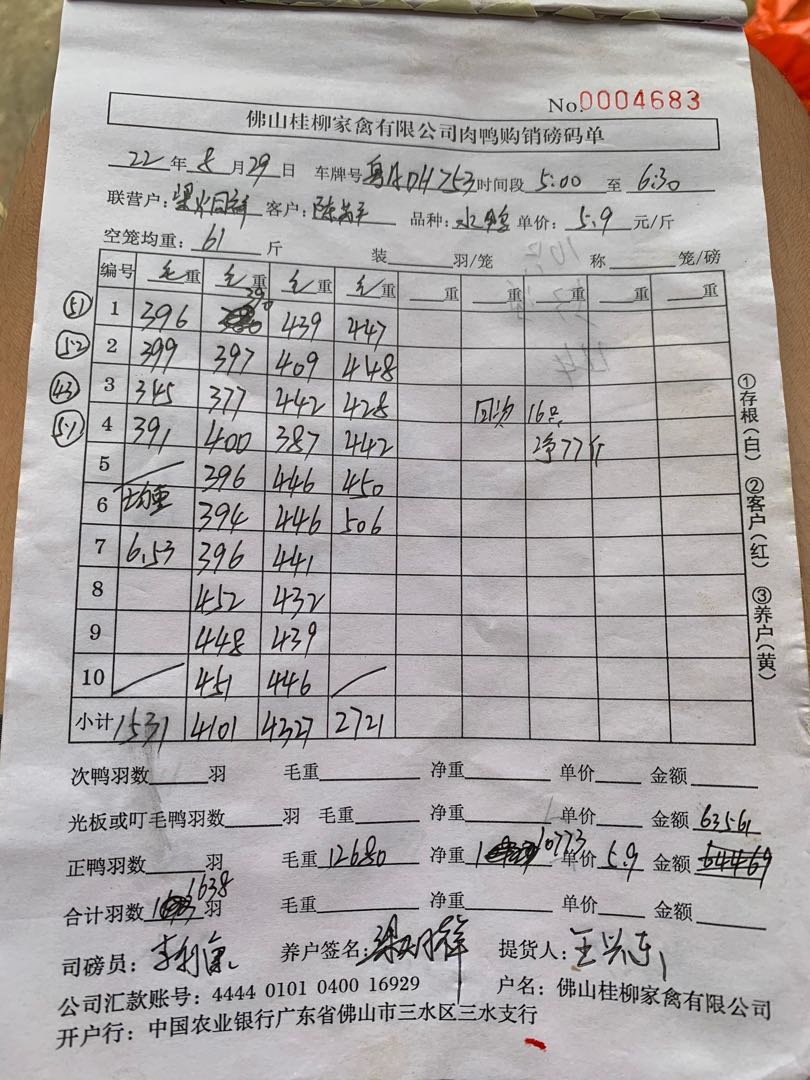 No.0004683
佛山桂柳家禽有限公司肉鸭购销磅码单
22年8月29日 车牌号 粤ADH753 时间段 5:00 至 6:30
联营户: 客户: 品种:水鸭 单价:5.9元/斤
空笼均重:61斤 装 羽/笼 称 笼/磅
编号 毛重 毛重 毛重 毛重 重 重 重 重 重
51 1 396 390 439 447
52 2 399 397 409 448
43 3 345 377 442 428 回沙 16只
51 4 391 400 387 442 净77斤
5 396 446 450
6 均重 394 446 506
7 6.53 396 441
8 452 432
9 448 439
10 451 446
小计 1531 4101 4327 2721
①存根(白) ②客户(红) ③养户(黄)
次鸭羽数 羽 毛重 净重 单价 金额
光板或叮毛鸭羽数 羽 毛重 净重 单价 金额 63561
正鸭羽数 羽 毛重 12680 净重 10773 单价 5.9 金额 64469
合计羽数 1638 羽 毛重 净重 单价 金额
司磅员: 养户签名: 提货人:王兴东
公司汇款账号:4444 0101 0400 16929 户名:佛山桂柳家禽有限公司
开户行:中国农业银行广东省佛山市三水区三水支行